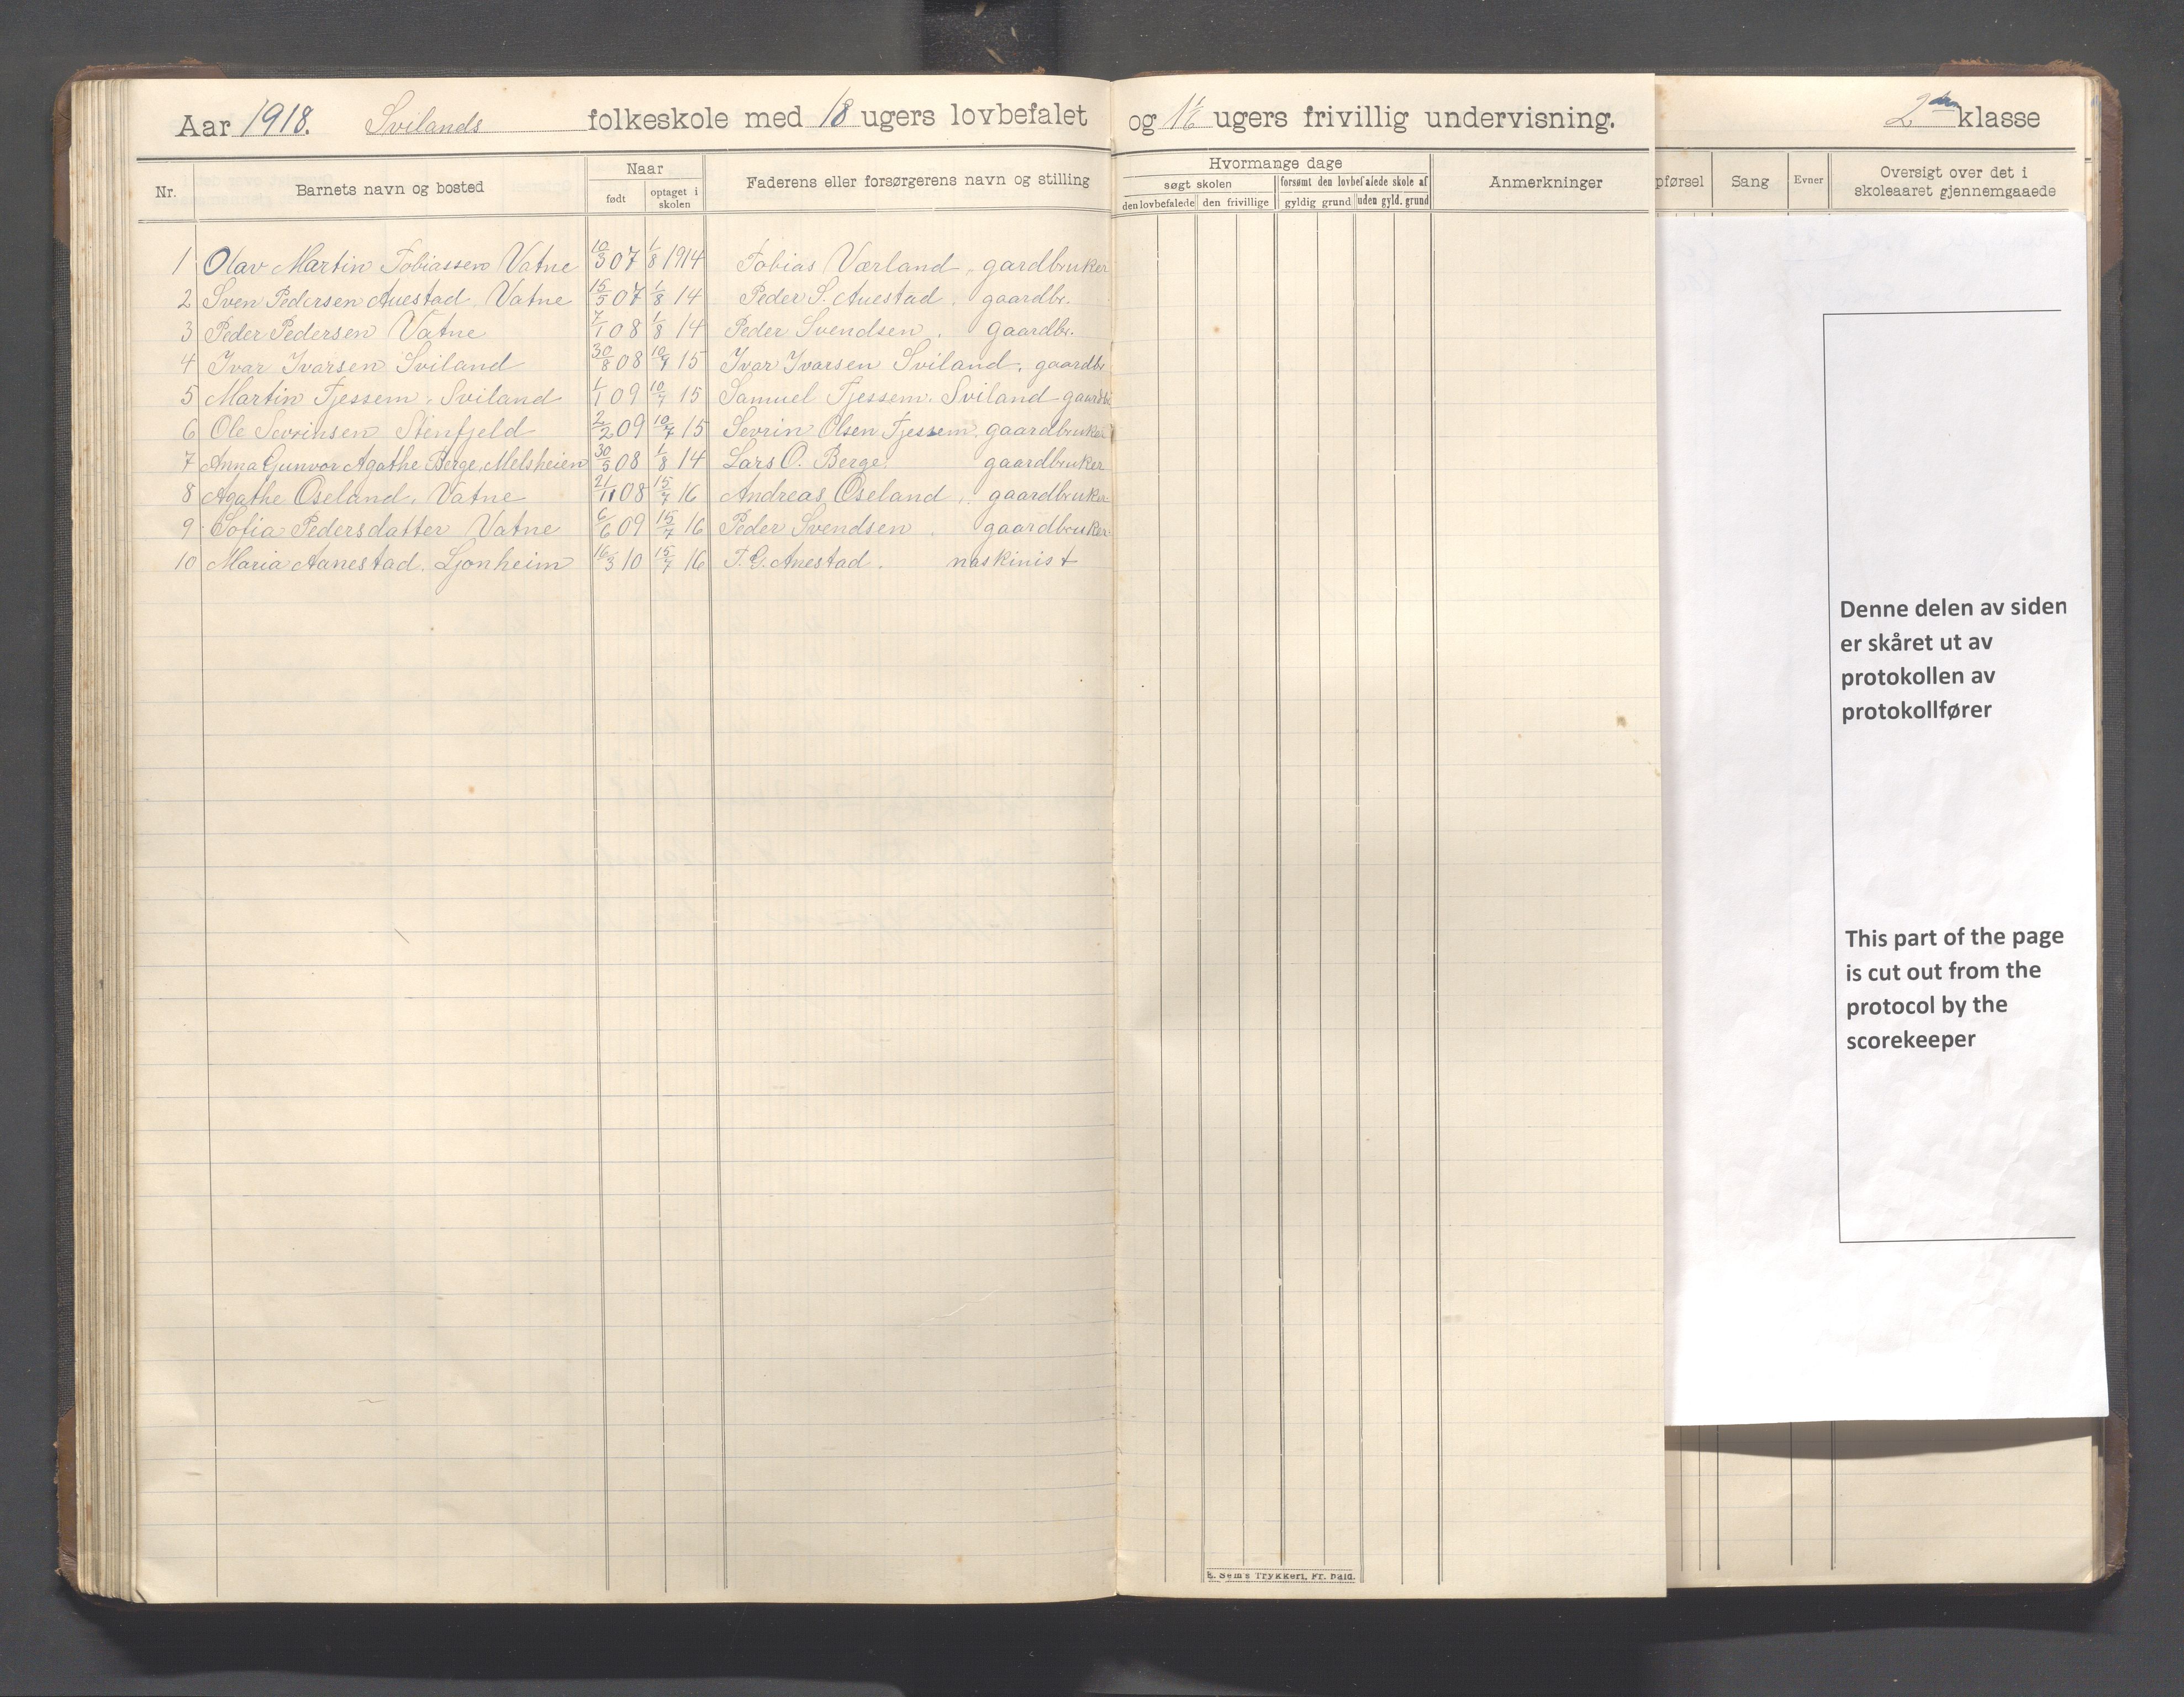 Aar 1918. Svilands folkeskole med 18 ugers lovbefalet og 1 1/6 ugers frivillig undervisning. 2den klasse
Nr. Barnets navn og bosted Naar født optaget i skolen Faderens eller forsørgerens navn og stilling Hvormange dage søgt skolen den lovbefalede den frivillige forsømt den lovbefalede skole af gyldig grund uden gyld. grund Anmerkninger pførsel Sang Evner Oversigt over det i skoleaaret gjennemgaaede
1 Olav Martin Tobiassen Vatne 10/3 07 1/8 1914 Tobias Værland, gardbruker
2 Sven Pedersen Auestad, Vatne 15/5 07 1/8 14 Peder S. Auestad, gaardbr.
3 Peder Pedersen Vatne 7/1 08 1/8 14 Peder Svendsen, gaardbr.
4 Ivar Ivarsen Sviland 30/8 08 10/7 15 Ivar Ivarsen Sviland, gaardbr
5 Martin Fjessem, Sviland 1/1 09 10/7 15 Samuel Fjessem, Sviland gaardbr
6 Ole Sevrinsen Stenfjeld 2/2 09 10/7 15 Sevrin Olsen Fjessem, gaardbruker
7 Anna Gunvor Agathe Berge, Melsheien 30/5 08 1/8 14 Lars O. Berge, gaardbruker
8 Agathe Oseland, Vatne 21/11 08 15/7 16 Andreas Oseland, gaardbruker
9 Sofia Pedersdatter Vatne 6/6 09 15/7 16 Peder Svendsen, gaardbruker
10 Maria Aanestad, Ljonheim 16/3 10 15/7 16 T. G. Anestad, maskinist
Denne delen av siden
er skåret ut av
protokollen av
protokollfører
This part of the page
is cut out from the
protocol by the
scorekeeper
E. Sem's Trykkeri, Fr.hald.